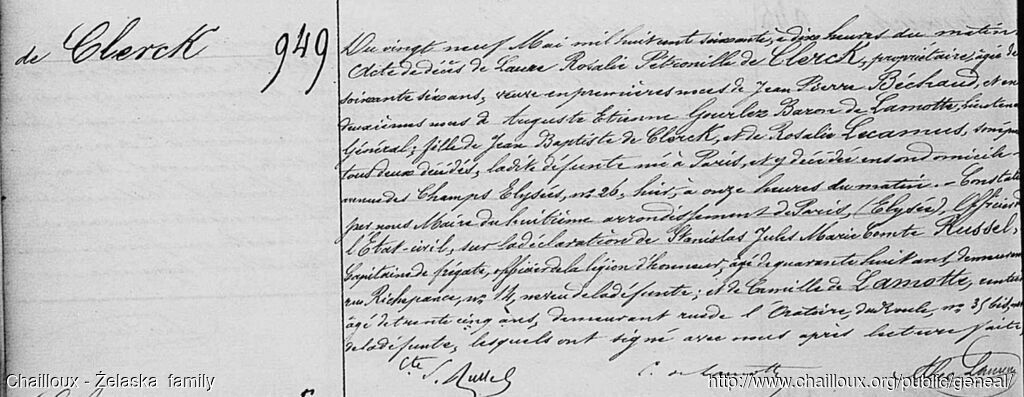 de Clerck 949
Du vingt neuf Mai mil huit cent soixante, à dix heures du matin.
Acte de décès de Laure Rosalie Pétronille de Clerck, propriétaire, âgée de
soixante six ans, veuve en premières noces de Jean Pierre Béchaud, et en
deuxièmes noces d' Auguste Etienne Gourlez Baron de Lamotte, lieutenant
Général; fille de Jean Baptiste de Clerck, et de Rosalie Lecamus, son épouse
tous deux décédés, ladite défunte née à Paris, et y décédée en son domicile
avenue des Champs Elysées, no 26, hier, à onze heures du matin. - Constaté
par nous Maire du huitième arrondissement de Paris, (Elysée), officier de
l'Etat-civil, sur la déclaration de Stanislas Jules Marie Comte Russel,
Capitaine de frégate, officier de la légion d'honneur, âgé de quarante huit ans demeurant
rue Richepance, no 14, neveu de la défunte; et de Camille de Lamotte,
âgé de trente cinq ans, demeurant rue de l'Oratoire du Roule, no 35 bis,
de la défunte, lesquels ont signé avec nous après lecture faite
Cte S. Russel C. de Lamotte
Chailloux - Żelaska family
http://www.chailloux.org/public/geneal/